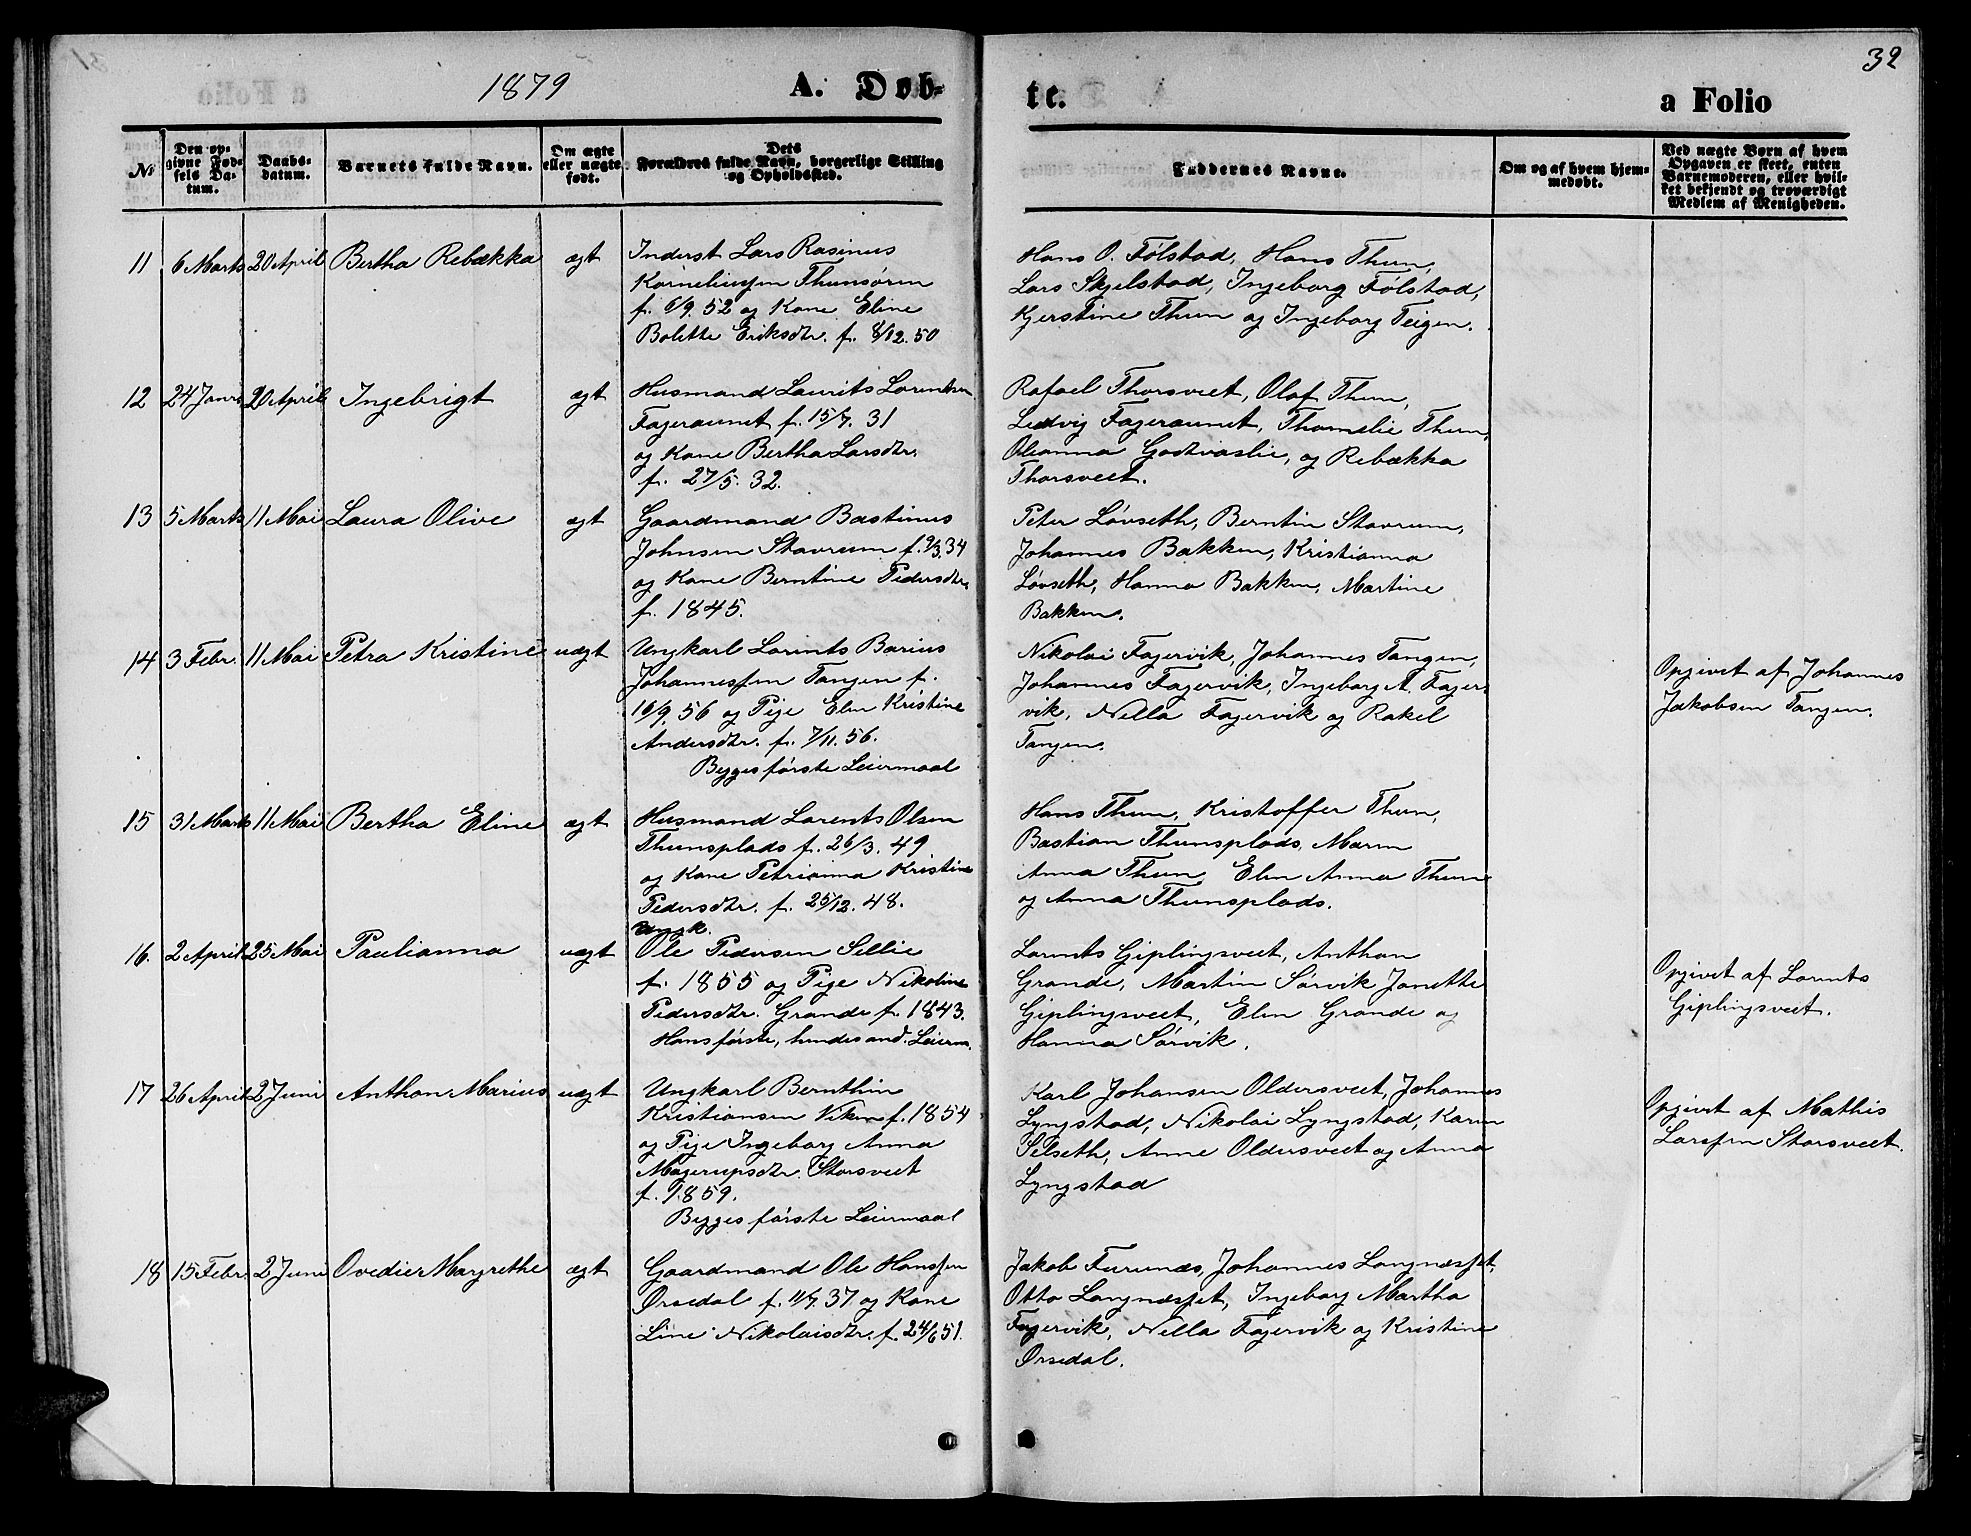 32
1879 A. Døb-
te.
a Folio
№
Den op-
givne Fød-
sels Da-
tum.
Daabs-
datum.
Barnets fulde Navn.
Om ægte
eller uægte
født.
Dets
Forældres fulde Navn, borgerlige Stilling
og Opholdssted.
Faddernes Navne.
Om og af hvem hjem-
medøbt.
Ved uægte Børn af hvem
Opgaven er skeet, enten
Barnemoderen, eller hvil-
ket bekjendt og troværdigt
Medlem af Menigheden.
11 6 Marts 20 April Bertha Rebækka ægt
Inderst Lars Rasinus
Kornelius​sen Thunsøren
f. 6/9. 52 og Kone Eline
Bolette Eriksdtr. f. 8/12. 50
Hans O. Følstad, Hans Thun,
Lars Skjelstad, Ingeborg Følstad,
Kjerstine Thun og Ingeborg Teigen.
12 24 Janr. 20 April Ingebrigt ægt
Husmand Laurits Lorentsen
Fageraunet f. 15/7. 31
og Kone Bertha Larsdtr.
f. 27/5. 32.
Rafael Thorsveet, Olaf Thun,
Ludvig Fageraunet, Thomelie Thun,
Oleanna Godtvaslie, og Rebækka
Thorsveet.
13 5 Marts 11 Mai Laura Olive ægt
Gaardmand Bastinus
Johnsen Stavrum f. 9/3 34
og Kone Berntine Pedersdtr.
f. 1845.
Peter Løvseth, Berntin Stavrum,
Johannes Bakken, Kristianna
Løvseth, Hanna Bakken, Martine
Bakken.
14 3 Febr. 11 Mai Petra Kristine uægt
Ungkarl Lorents Barius
Johannessen Tangen f.
16/9. 56 og Pige Elen Kristine
Andersdtr. f. 7/11. 56.
Begges første Leiermaal
Nikolai Fagervik, Johannes Tangen,
Johannes Fagervik, Ingeborg A. Fager-
vik, Nella Fagervik og Rakel
Tangen.
Opgivet af Johannes
Jakobsen Tangen.
15 31 Marts 11 Mai Bertha Eline ægt
Husmand Lorents Olsen
Thunsplads f. 26/3. 49
og Kone Petrianna Kristine
Pedersdtr. f. 25/12. 48.
Hans Thun, Kristoffer Thun,
Bastian Thunsplads, Maren
Anna Thun, Elen Anna Thun
og Anna Thunsplads.
16. 2 April 25 Mai Paulianna uægt
Ungk.
Ole Pedersen Sellie
f. 1855 og Pige Nikoline
Pedersdtr. Grande f. 1843.
Hans første, hendes and. Leierm.
Lorents Giplingsveet, Anthon
Grande, Martin Sørvik, Janette
Giplingsveet, Elen Grande og
Hanna Sørvik.
Opgivet af Lorents
Giplingsveet.
17 26 April 2 Juni Anthon Marius uægt
Ungkarl Bernthin
Kristiansen Viken f. 1854
og Pige Ingeborg Anna
Magerupsdtr. Storsveet
f. 1859.
Begges første Leiermaal
Karl Johansen Oldersveet, Johannes
Lyngstad, Nikolai Lyngstad, Karen
Selseth, Anne Oldersveet og Anna
Lyngstad
Opgivet af Mathis
Larssen Storsveet.
18 15 Febr. 2 Juni Ovedier Margrethe ægt
Gaardmand Ole Hanssen
Ørsedal f. 11/7. 37 og Kone
Line Nikolaisdtr. f. 24/6 51.
Jakob Furunæs, Johannes Langnæsset,
Otto Langnæsset, Ingeborg Martha
Fagervik, Nella Fagervik og Kristine
Ørsedal.